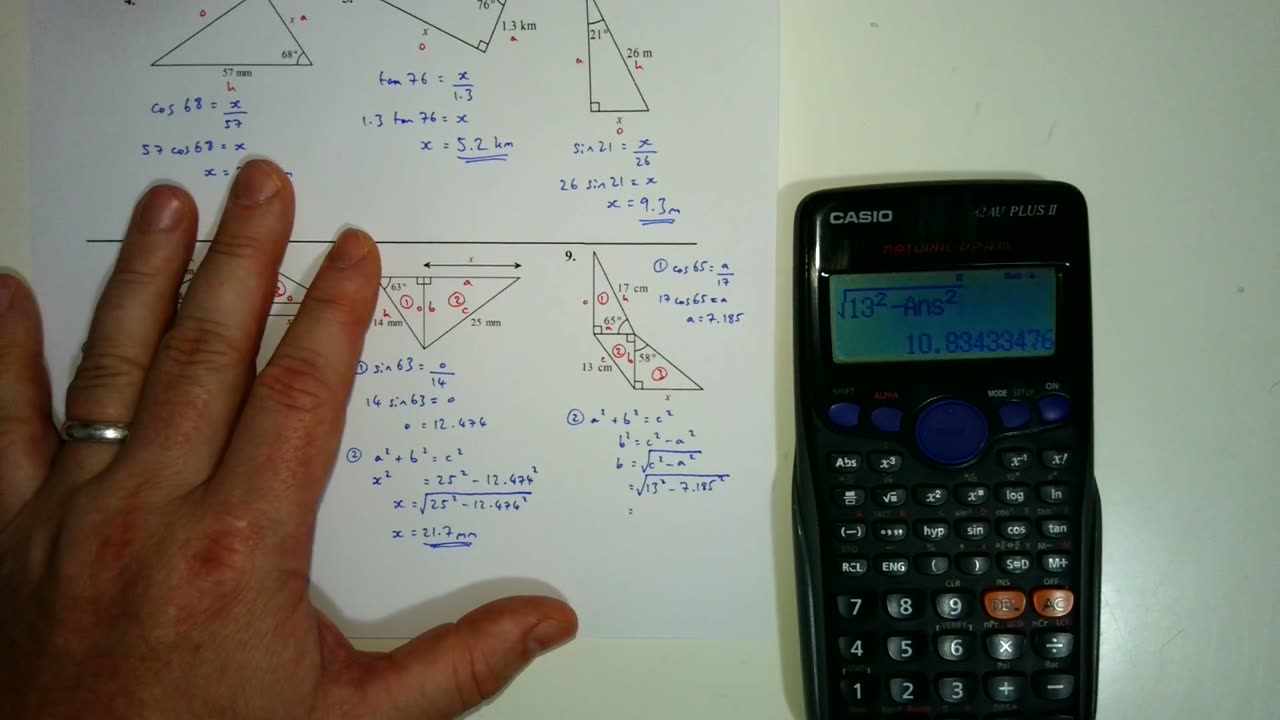 4.
o
x a
68°
57 mm
h
cos 68 = x/57
57 cos 68 = x
x =
76°
1.3 km
a
x
o
tan 76 = x/1.3
1.3 tan 76 = x
x = 5.2 km
21°
26 m
h
a
x
o
sin 21 = x/26
26 sin 21 = x
x = 9.3m
x
a
63°
① o b ②
c
h
14 mm
25 mm
① sin 63 = o/14
14 sin 63 = o
o = 12.474
② a² + b² = c²
x² = 25² - 12.474²
x = √25² - 12.474²
x = 21.7mm
9.
17 cm
h
o ①
65°
a
② b 58°
c
13 cm
③
x
① cos 65 = a/17
17 cos 65 = a
a = 7.185
② a² + b² = c²
b² = c² - a²
b = √c² - a²
= √13² - 7.185²
=
CASIO
PLUS II
√13²-Ans²
10.83433476
SHIFT ALPHA MODE SETUP ON
Abs x³ x⁻¹ x!
√ x² log ln
(−) hyp sin cos tan
RCL ENG ( ) S⇔D M+
CLR INS OFF
7 8 9 DEL AC
4 5 6 × ÷
1 2 3 + −